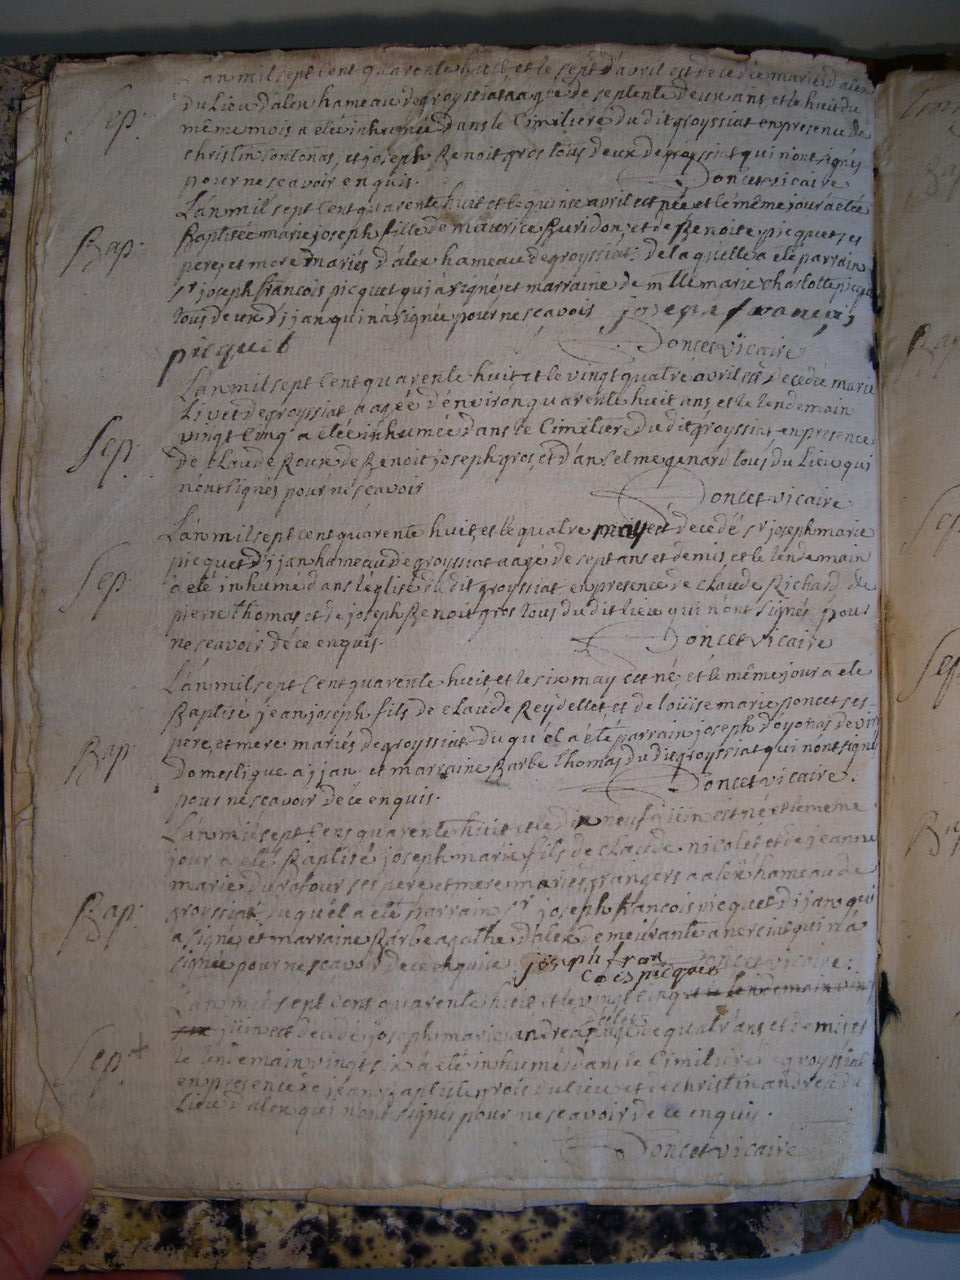 L'an mil sept cent quarente huit et le sept d'avril est decedée marie d'alex
Sep. du Lieu d'alex hameau de groyssiat aagée de septente deux ans et le huit du
même mois a eté inhumée dans le Cimetiere du dit groyssiat en presence de
christin et joseph Benoit gros tous deux de groyssiat qui n'ont signés
pour ne scavoir enquis. Doncet vicaire
L'an mil sept cent quarente huit et le quinse avril est née et le même jour a etée
Bap. Baptisée marie joseph fille de maurice Buridon et de Benoite picquet ses
pere et mere mariés d'alex hameau de groyssiat de laquelle a eté parrain
sr joseph francois picquet qui a signé et marraine de mlle marie charlotte picquet
tous deux d'ijan qui n'a signée pour ne scavois joseph francois
picquet Doncet vicaire
L'an mil sept cent quarente huit et le vingt quatre avril est decedée marie
Livet de groyssiat aagée d'environ quarente huit ans et le lendemain
Sep. vingt cinq a eté inhumée dans le Cimetiere du dit groyssiat en presence
de claude Roux de Benoit joseph gros et d'anselme genard tous du Lieu qui
n'ont signés pour ne scavoir Doncet vicaire
L'an mil sept cent quarente huit et le quatre may est decedé sr joseph marie
picquet d'ijan hameau de groyssiat aagé de sept ans et demis et le lendemain
Sep. a eté inhumé dans l'eglise du dit groyssiat en presence de claude Richard de
pierre Thomas et de joseph Benoit gros tous du dit lieu qui n'ont signés pour
ne scavoir de ce enquis. Doncet vicaire
L'an mil sept cent quarente huit et le six may est né et le même jour a ete
Baptisé jean joseph fils de claude Reydellet et de louise marie poncet ses
Bap. pere et mere mariés de groyssiat du quel a eté parrain joseph d'oyonas de
domestique a ijan et marraine Barbe Thomas du dit groyssiat qui n'ont signé
pour ne scavoir de ce enquis. Doncet vicaire.
L'an mil sept cent quarente huit et le dix neuf juin est né et le meme
jour a eté Baptisé joseph marie fils de claude nicolet et de jeanne
marie ses pere et mere mariés grangers a alex hameau de
Bap. groyssiat du quel a eté parrain sr joseph francois picquet d'ijan qui
a signé et marraine Barbe agathe d'alex demeurante a nerciat qui n'a
signée pour ne scavoir de ce enquise joseph fran
cois picquet Doncet vicaire.
L'an mil sept cent quarente huit et le vingt cinq et le lendemain vingt
six juin est decedé joseph marie andrea aagé de quatr'ans et demis et
Sep. le lendemain vingt six a eté inhumé dans le Cimetiere de groyssiat
en presence de jean baptiste grois du lieu et de christin andrea du
Lieu d'alex qui n'ont signés pour ne scavoir de ce enquis.
Doncet vicaire